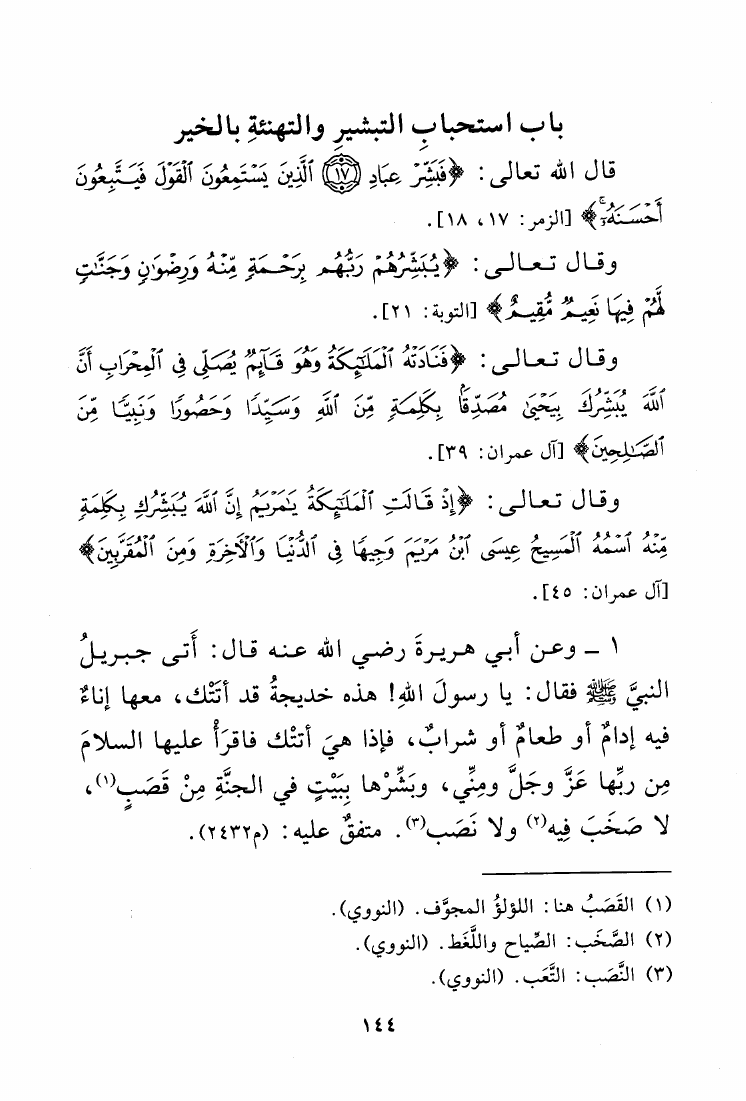 باب استحبابِ التبشيرِ والتهنئةِ بالخير
قال الله تعالى: ﴿فَبَشِّرْ عِبَادِ ﴿١٧﴾ ٱلَّذِينَ يَسْتَمِعُونَ ٱلْقَوْلَ فَيَتَّبِعُونَ
أَحْسَنَهُۥٓۚ﴾ [الزمر: ١٧، ١٨].
وقال تعالى: ﴿يُبَشِّرُهُمْ رَبُّهُم بِرَحْمَةٍ مِّنْهُ وَرِضْوَٰنٍ وَجَنَّٰتٍ
لَّهُمْ فِيهَا نَعِيمٌ مُّقِيمٌ﴾ [التوبة: ٢١].
وقال تعالى: ﴿فَنَادَتْهُ ٱلْمَلَٰٓئِكَةُ وَهُوَ قَآئِمٌ يُصَلِّى فِى ٱلْمِحْرَابِ أَنَّ
ٱللَّهَ يُبَشِّرُكَ بِيَحْيَىٰ مُصَدِّقًۢا بِكَلِمَةٍ مِّنَ ٱللَّهِ وَسَيِّدًا وَحَصُورًا وَنَبِيًّا مِّنَ
ٱلصَّٰلِحِينَ﴾ [آل عمران: ٣٩].
وقال تعالى: ﴿إِذْ قَالَتِ ٱلْمَلَٰٓئِكَةُ يَٰمَرْيَمُ إِنَّ ٱللَّهَ يُبَشِّرُكِ بِكَلِمَةٍ
مِّنْهُ ٱسْمُهُ ٱلْمَسِيحُ عِيسَى ٱبْنُ مَرْيَمَ وَجِيهًا فِى ٱلدُّنْيَا وَٱلْأٓخِرَةِ وَمِنَ ٱلْمُقَرَّبِينَ﴾
[آل عمران: ٤٥].
١ ـ وعن أبي هريرةَ رضي الله عنه قال: أَتى جبريلُ
النبيَّ ﷺ فقال: يا رسولَ اللهِ! هذه خديجةُ قد أتَتْك، معها إناءٌ
فيه إدامٌ أو طعامٌ أو شرابٌ، فإذا هيَ أتتْك فاقرَأْ عليها السلامَ
مِن ربِّها عَزَّ وجَلَّ ومنِّي، وبَشِّرْها بِبَيْتٍ في الجنَّةِ مِنْ قَصَبٍ(١)،
لا صَخَبَ فِيه(٢) ولا نَصَب(٣). متفقٌ عليه: (م٢٤٣٢).
(١) القَصَبُ هنا: اللؤلؤُ المجوَّف. (النووي).
(٢) الصَّخَب: الصِّياح واللَّغَط. (النووي).
(٣) النَّصَب: التَّعَب. (النووي).
١٤٤